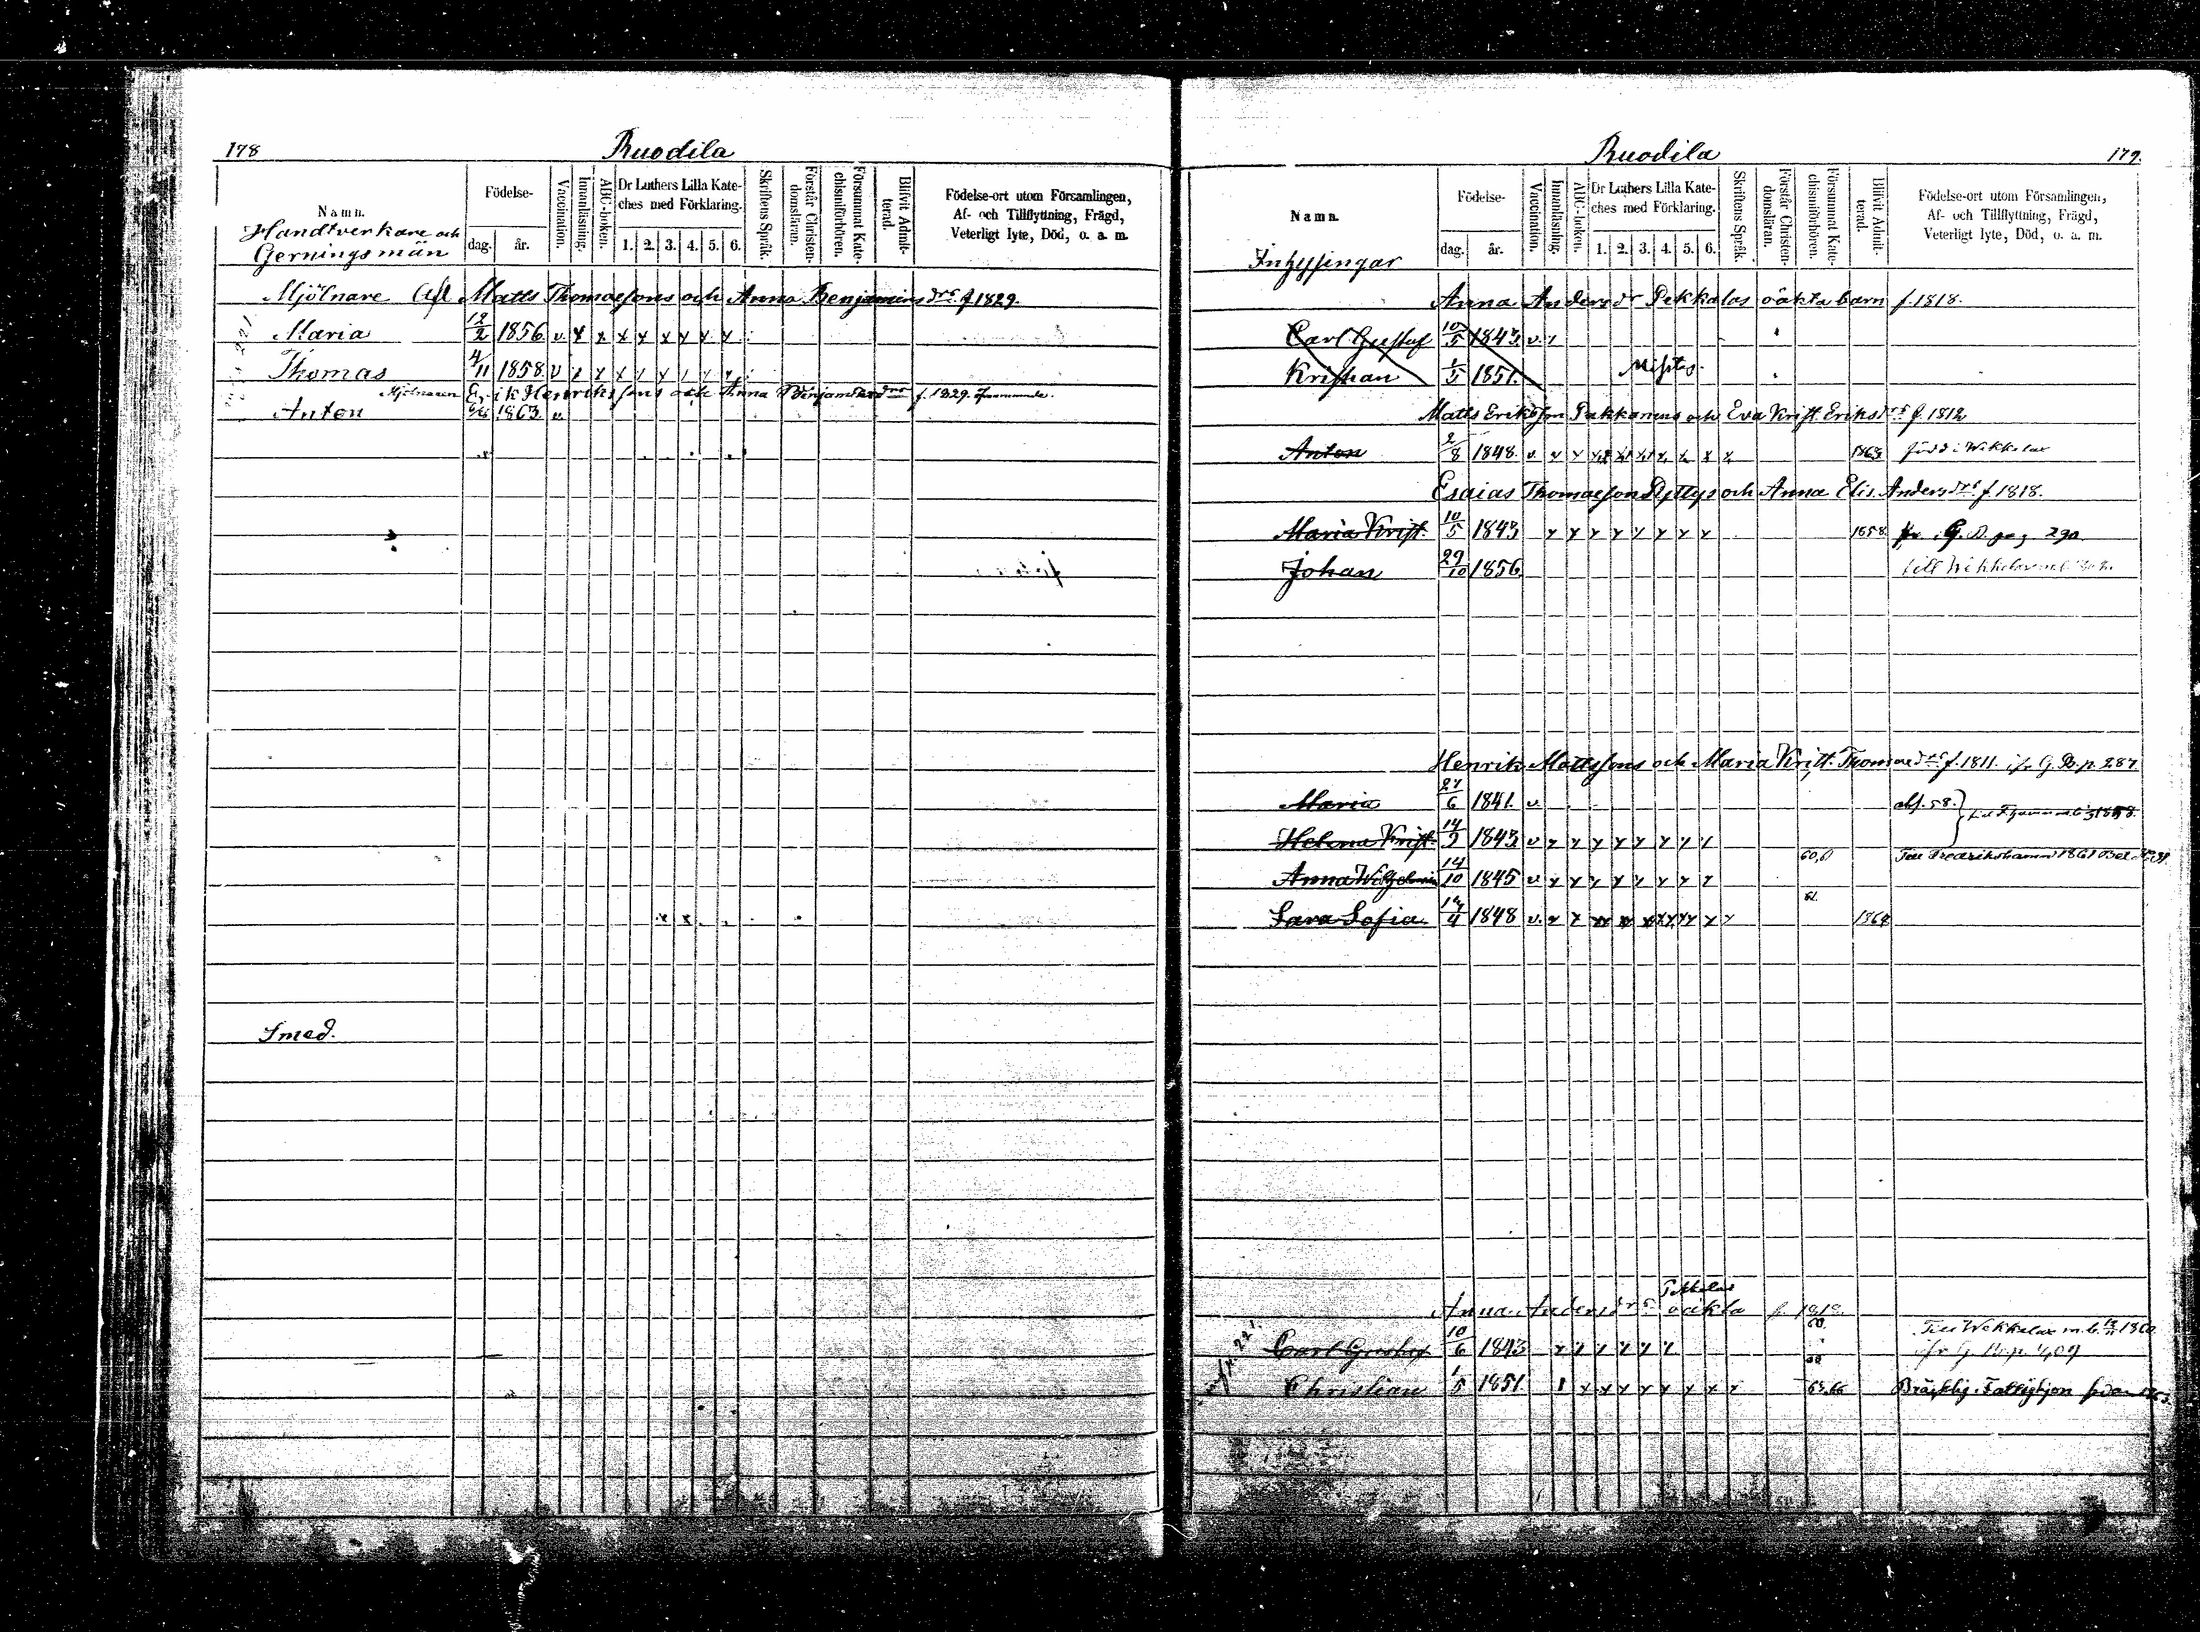 178
Ruodila
Namn.
Handtverkare och
Gerningsmän
Födelse-
dag.
år.
Vaccination.
Innanläsning.
ABC-boken.
Dr Luthers Lilla Kate-
ches med Förklaring.
1. 2. 3. 4. 5. 6.
Skriftens Språk.
Förstår Christen-
domsläran.
Försummat Kate-
chismiförhören.
Blifvit Admit-
terad.
Födelse-ort utom Församlingen,
Af- och Tillflyttning, Frägd,
Veterligt lyte, Död, o. a. m.
Mjölnare Afl Matts Thomaesons och Anna Benjamins drs f 1829.
Maria 12/2 1856 v x x x x x x x x
Thomas 4/11 1858 v
Mjölnaren Erik Henrikssons och Anna Benjamins drs f. 1829
Anton 1863 v
Smed.
Ruodila
179.
Namn.
Inhysingar
Födelse-
dag.
år.
Vaccination.
Innanläsning.
ABC-boken.
Dr Luthers Lilla Kate-
ches med Förklaring.
1. 2. 3. 4. 5. 6.
Skriftens Språk.
Förstår Christen-
domsläran.
Försummat Kate-
chismiförhören.
Blifvit Admit-
terad.
Födelse-ort utom Församlingen,
Af- och Tillflyttning, Frägd,
Veterligt lyte, Död, o. a. m.
Anna Anders dr Pekkalas oäkta barn f. 1818.
Carl Gustaf 10/5 1843 v.
Kristian 1/5 1851.
Matts Eriksson Pakkanens och Eva Krist. Eriks drs f. 1812
Anton 2/8 1848 v x x 1863 född i Wekkelax
Esaias Thomaeson Ryttys och Anna Elis. Anders drs f. 1818.
Maria Krist. 10/5 1843 x x x x x x x x 1858 G. B. pag 290
Johan 29/10 1856
Henrik Mattssons och Maria Krist. Thomae drs f. 1811. ifr G. B. p. 287
Maria 27/6 1841. v adm. 58.
Helena Krist. 14/9 1843 v x x x x x x x x
60,61 Till Fredrikshamn 1861
Anna Wilhelmina 14/10 1845 v x x x x x x x x
62.
Sara Sofia 19/4 1848 v. 1864
Anna Anders drs Pekkalas oäkta f. 1818
Carl Gustaf 10/6 1843 x x x x x x 60. Till Wekkelax m. b. 1860
ifr G. B. p. 409
Christian 1/5 1851 65.66 Bräcklig. Fattighjon sedan